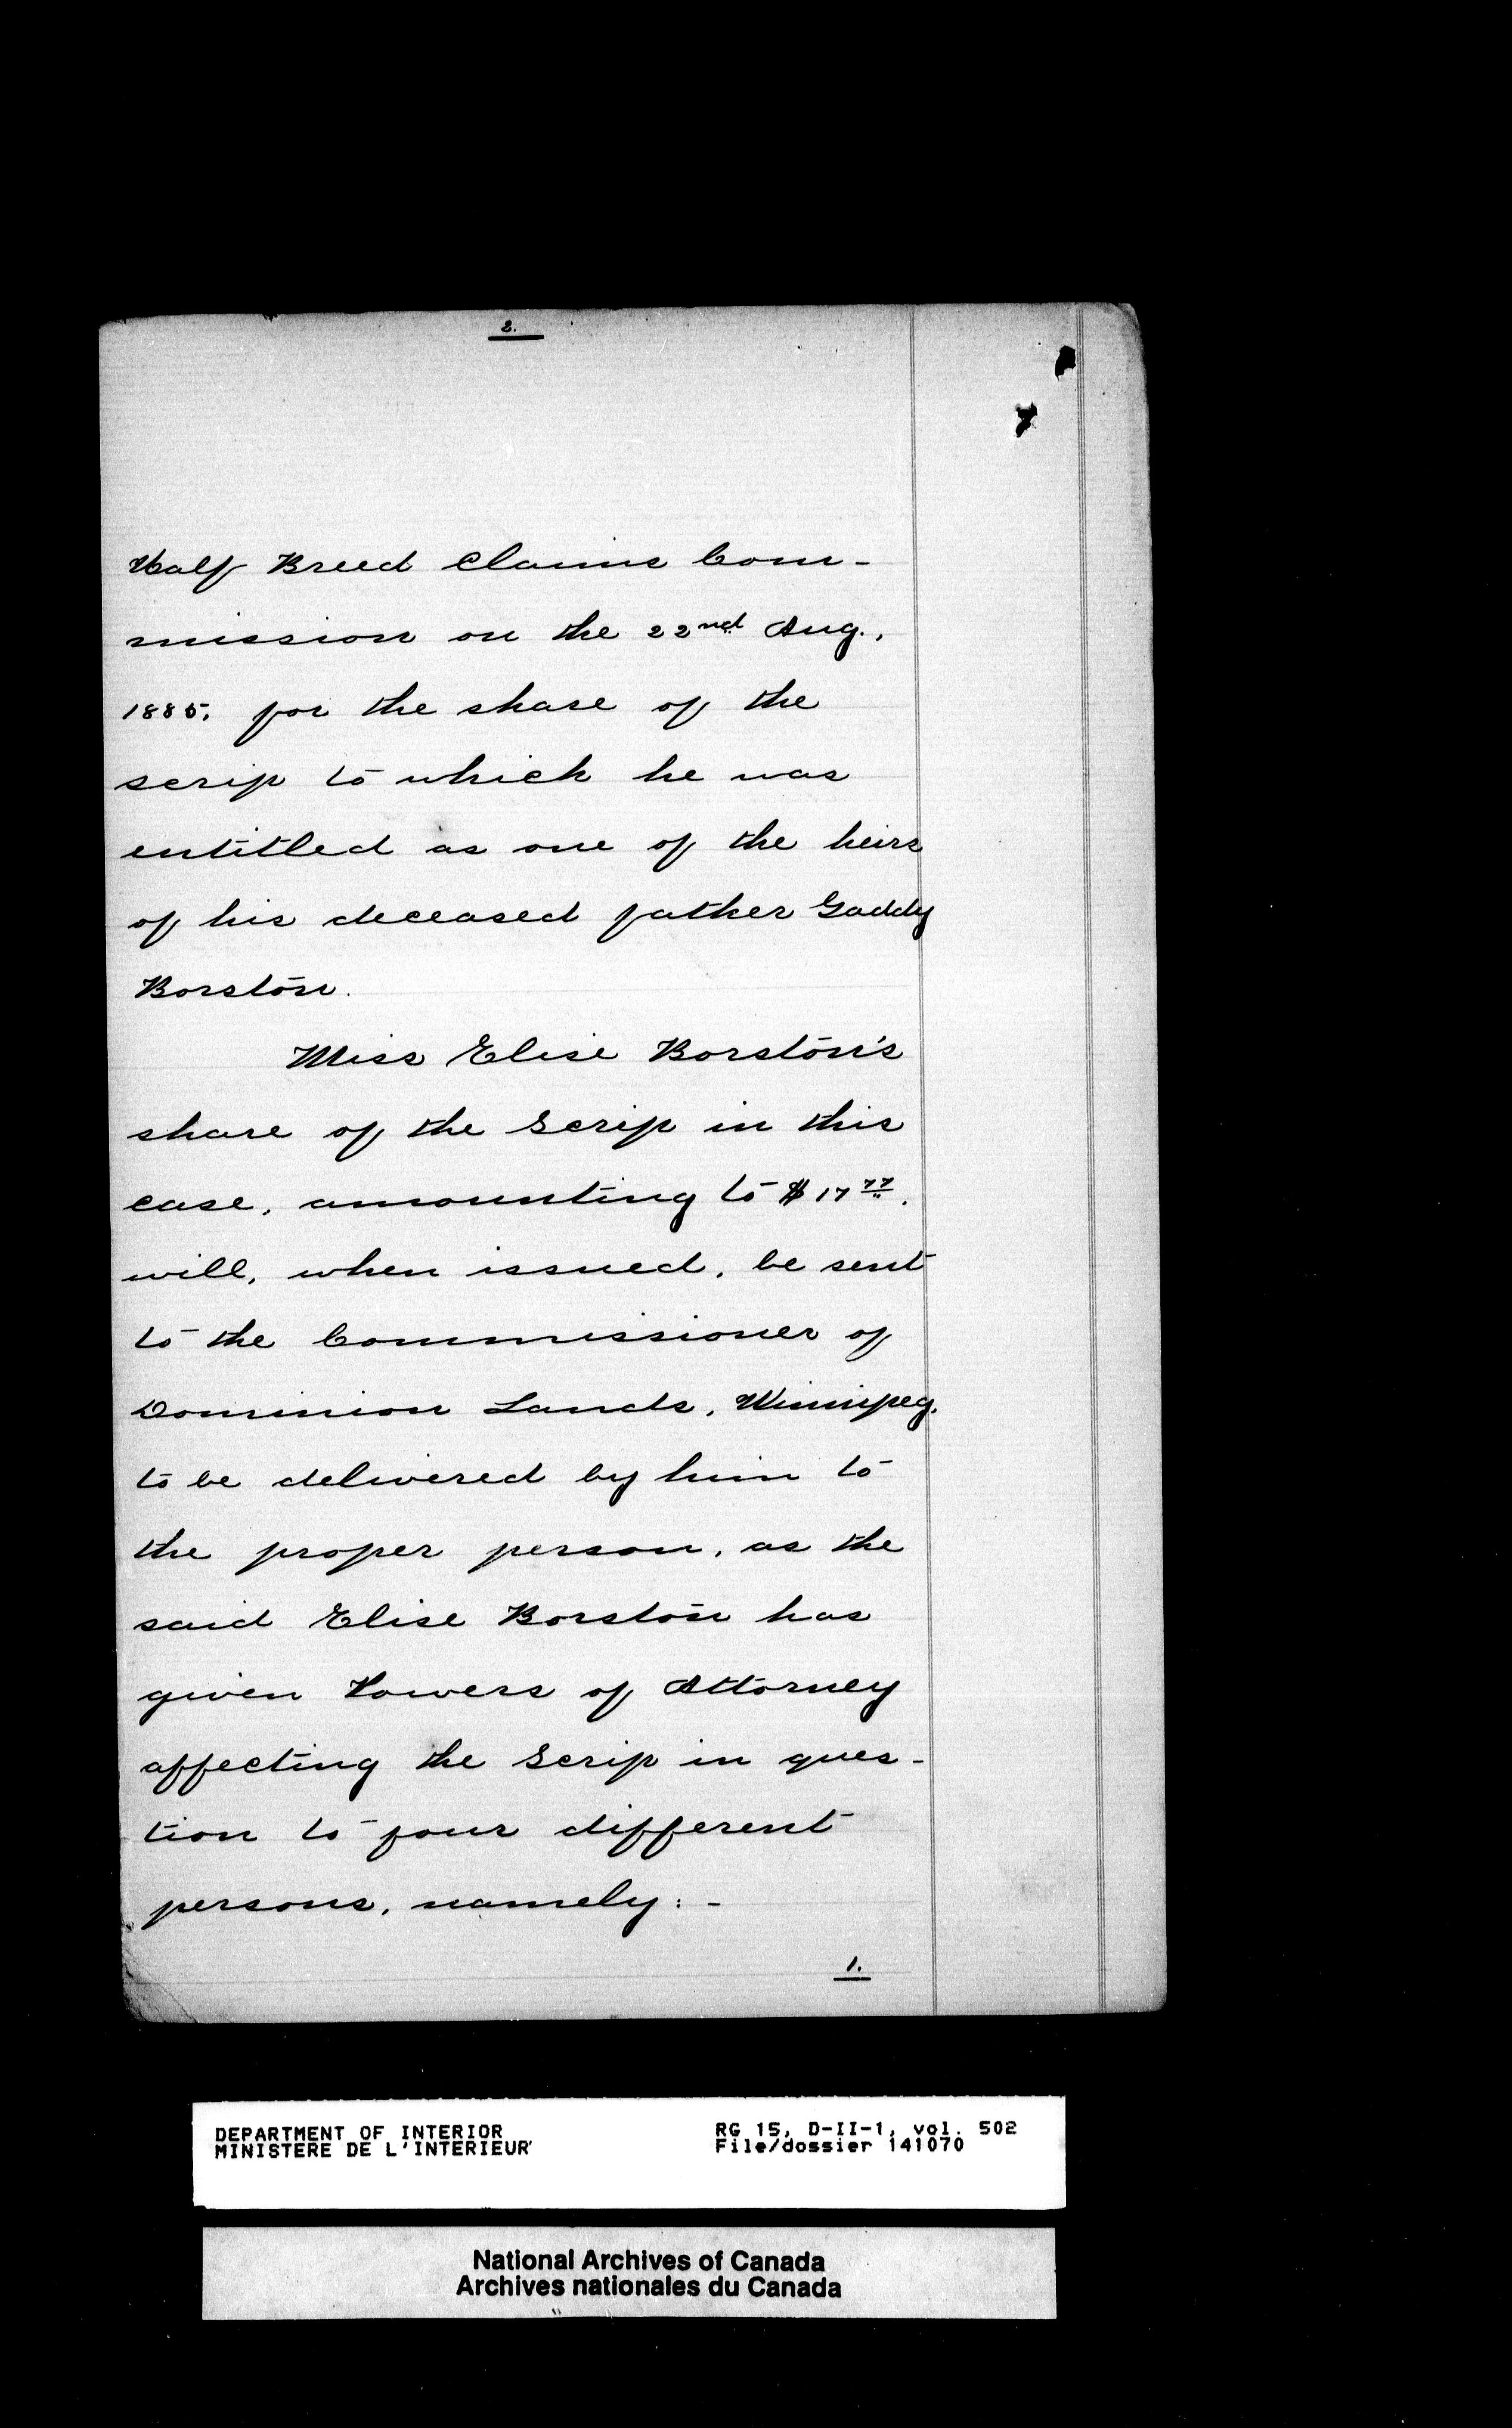 2.
Half Breed Claims Com-
mission on the 22nd Aug.,
1885, for the share of the
scrip to which he was
entitled as one of the heirs
of his deceased father Gaddy
Borston.
Miss Elise Borston's
share of the Scrip in this
case, amounting to $17 77,
will, when issued, be sent
to the Commissioner of
Dominion Lands, Winnipeg,
to be delivered by him to
the proper person, as the
said Elise Borston has
given Powers of Attorney
affecting the Scrip in ques-
tion to four different
persons, namely:-
1.
DEPARTMENT OF INTERIOR
MINISTERE DE L'INTERIEUR
RG 15, D-II-1, vol. 502
File/dossier 141070
National Archives of Canada
Archives nationales du Canada